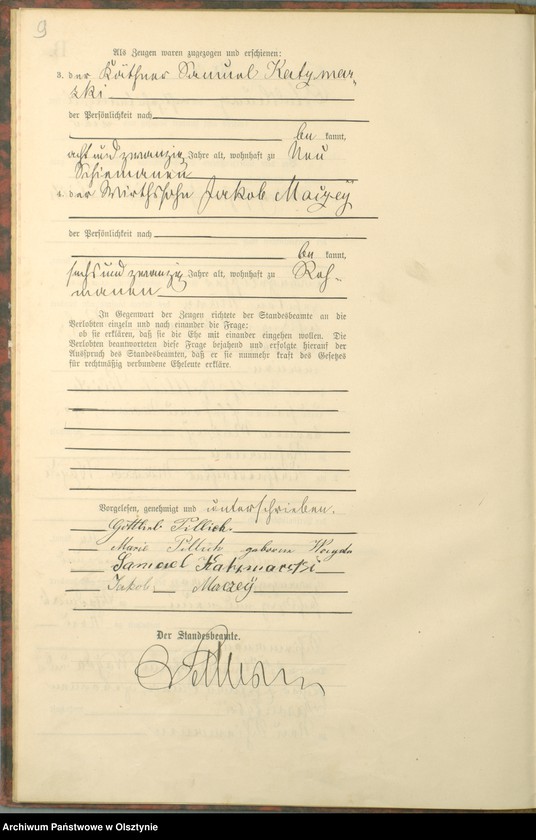 9
Als Zeugen waren zugezogen und erschienen:
3. der Käthner Samuel Katzmar-
zki
der Persönlichkeit nach
be kannt,
acht und zwanzig Jahre alt, wohnhaft zu Neu
Schiemanen
4. der Wirthssohn Jakob Maczey
der Persönlichkeit nach
be kannt,
sechs und zwanzig Jahre alt, wohnhaft zu Roh-
manen
In Gegenwart der Zeugen richtete der Standesbeamte an die
Verlobten einzeln und nach einander die Frage:
ob sie erklären, daß sie die Ehe mit einander eingehen wollen. Die
Verlobten beantworteten diese Frage bejahend und erfolgte hierauf der
Ausspruch des Standesbeamten, daß er sie nunmehr kraft des Gesetzes
für rechtmäßig verbundene Eheleute erkläre.
Vorgelesen, genehmigt und unterschrieben.
Gottlieb Pillich
Marie Pillich geborene
Samuel Katzmarski
Jakob Maczeÿ
Der Standesbeamte.
Archiwum Państwowe w Olsztynie